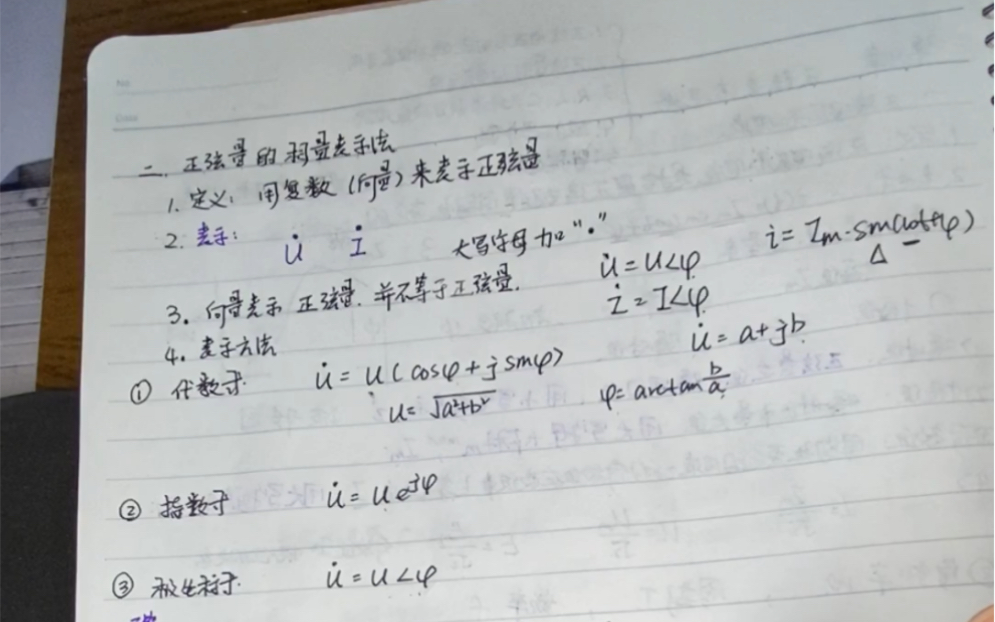 二、正弦量的相量表示法
1. 定义: 用复数(向量)来表示正弦量
2. 表示: U̇ İ 大写字母加“·” i = Im·sin(ωt+φ)
U̇ = U∠φ
3. 向量表示正弦量, 并不等于正弦量. İ = I∠φ
4. 表示方法 U̇ = a+jb
① 代数式 U̇ = U(cosφ + j sinφ)
U = √(a²+b²) φ = arctan b/a
② 指数式 U̇ = U e^{jφ}
③ 极坐标式 U̇ = U∠φ